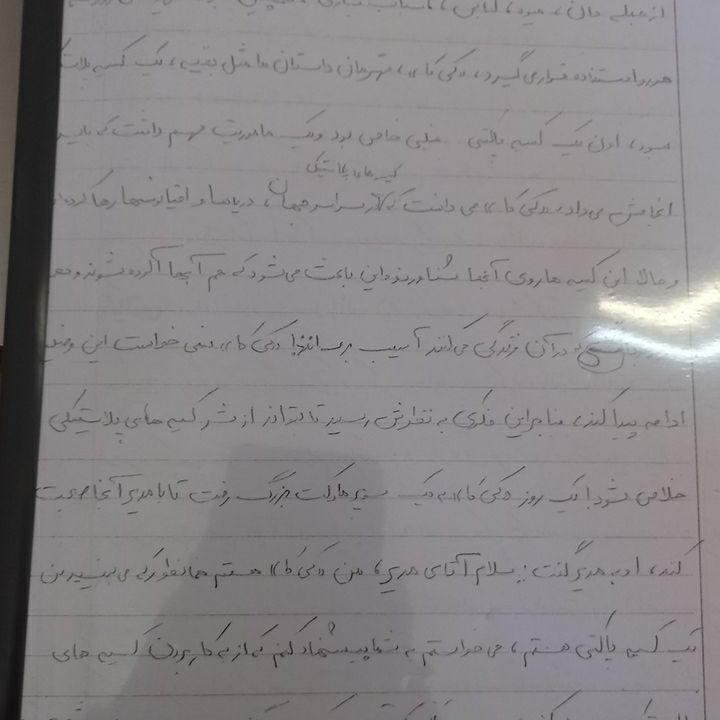 از جمله نان، میوه، لباس، اسباب بازی،
مورد استفاده قرار می گیرد، «کی کا»، قهرمان داستان ما مثل بقیه، یک کیسه پلاستیکی
نبود، اون یک کیسه پاکتی خیلی خاص بود و یک ماموریت مهم داشت که باید
کیسه های پلاستیکی
انجامش می داد، «کی کا» می دانست که در سراسر جهان، دریاها و اقیانوسها رها کرده اند
و حالا این کیسه ها روی آنها شناورند و این باعث می شود که هم آبها آلوده شوند و هم
که در آن زندگی می کنند آسیب برسانند! «کی کا» نمی خواست این وضعیت
ادامه پیدا کند، بنابراین فکری به نظرش رسید تا بتواند از شر کیسه های پلاستیکی
خلاص شود! یک روز «کی کا» به یک سوپر مارکت بزرگ رفت تا با مدیر آنجا صحبت
کند، او به مدیر گفت: سلام آقای مدیر، من «کی کا» هستم همانطور که می بینید من
یک کیسه پاکتی هستم، می خواستم به شما پیشنهاد کنم که از به کار بردن کیسه های